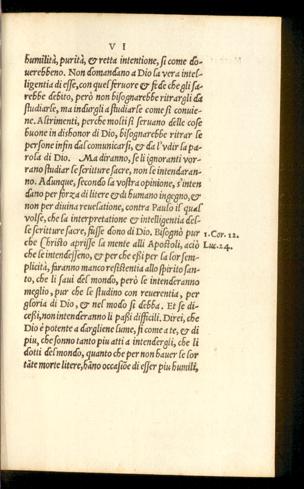 VI
humilità, purità, & retta intentione, si come do-
uerebbeno. Non domandano a Dio la vera intel-
ligentia di esse, con quel feruore & fede che gli sa-
rebbe debito, però non bisognarebbe ritrargli da
studiarle, ma indurgli a studiarle come si conuie-
ne. Altrimenti, perche molti si seruano delle cose
buone in dishonor di Dio, bisognarebbe ritrar le
persone infin dal comunicarsi, & da l'vdir la pa-
rola di Dio. Ma diranno, se li ignoranti vor-
rano studiar le scritture sacre, non le intendaran-
no. Adunque, secondo la vostra opinione, s'inten
dano per forza di litere & di humano ingegno, &
non per diuina reuelatione, contra Paulo il qual
volse, che la interpretatione & intelligentia del-
le scritture sacre, fusse dono di Dio. Bisognò pur
che Christo aprisse la mente alli Apostoli, aciò
1. Cor. 12.
Luc. 24.
che le intendesseno, & per che eßi per la lor sem-
plicità, faranno manco resistentia allo spirito san-
to, che li saui del mondo, però le intenderanno
meglio, pur che le studino con reuerentia, per
gloria di Dio, & nel modo si debba. Et se di-
ceßi, non intenderanno li paßi difficili. Direi, che
Dio è potente a dargliene lume, si come a te, & di
piu, che sonno tanto piu atti a intendergli, che li
dotti del mondo, quanto che per non hauer le lor
tãte morte litere, hãno occasiõe di esser piu humili,